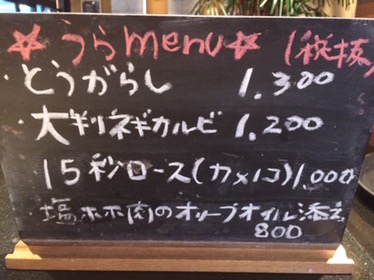 ☆うらmenu☆ (税抜)
・とうがらし 1,300
・大判ネギカルビ 1,200
15秒ロース(カメノコ)1,000
・塩ホホ肉のオリーブオイル添え
800